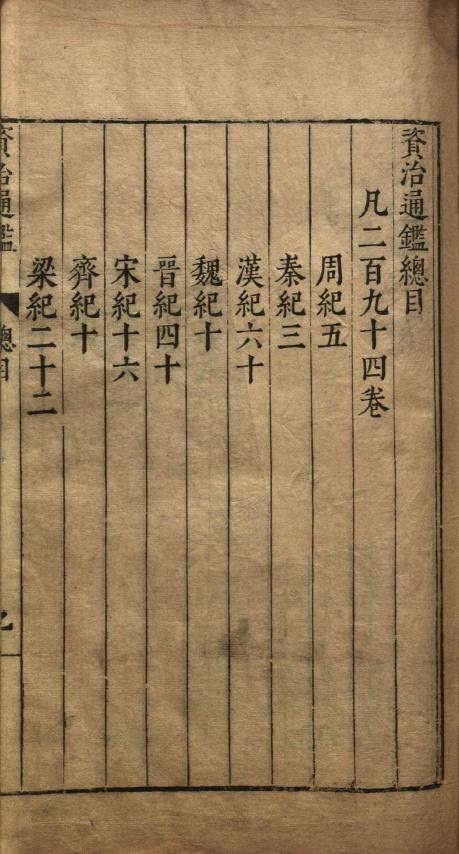 資治通鑑總目
凡二百九十四卷
周紀五
秦紀三
漢紀六十
魏紀十
晉紀四十
宋紀十六
齊紀十
梁紀二十二
資治通鑑 總目